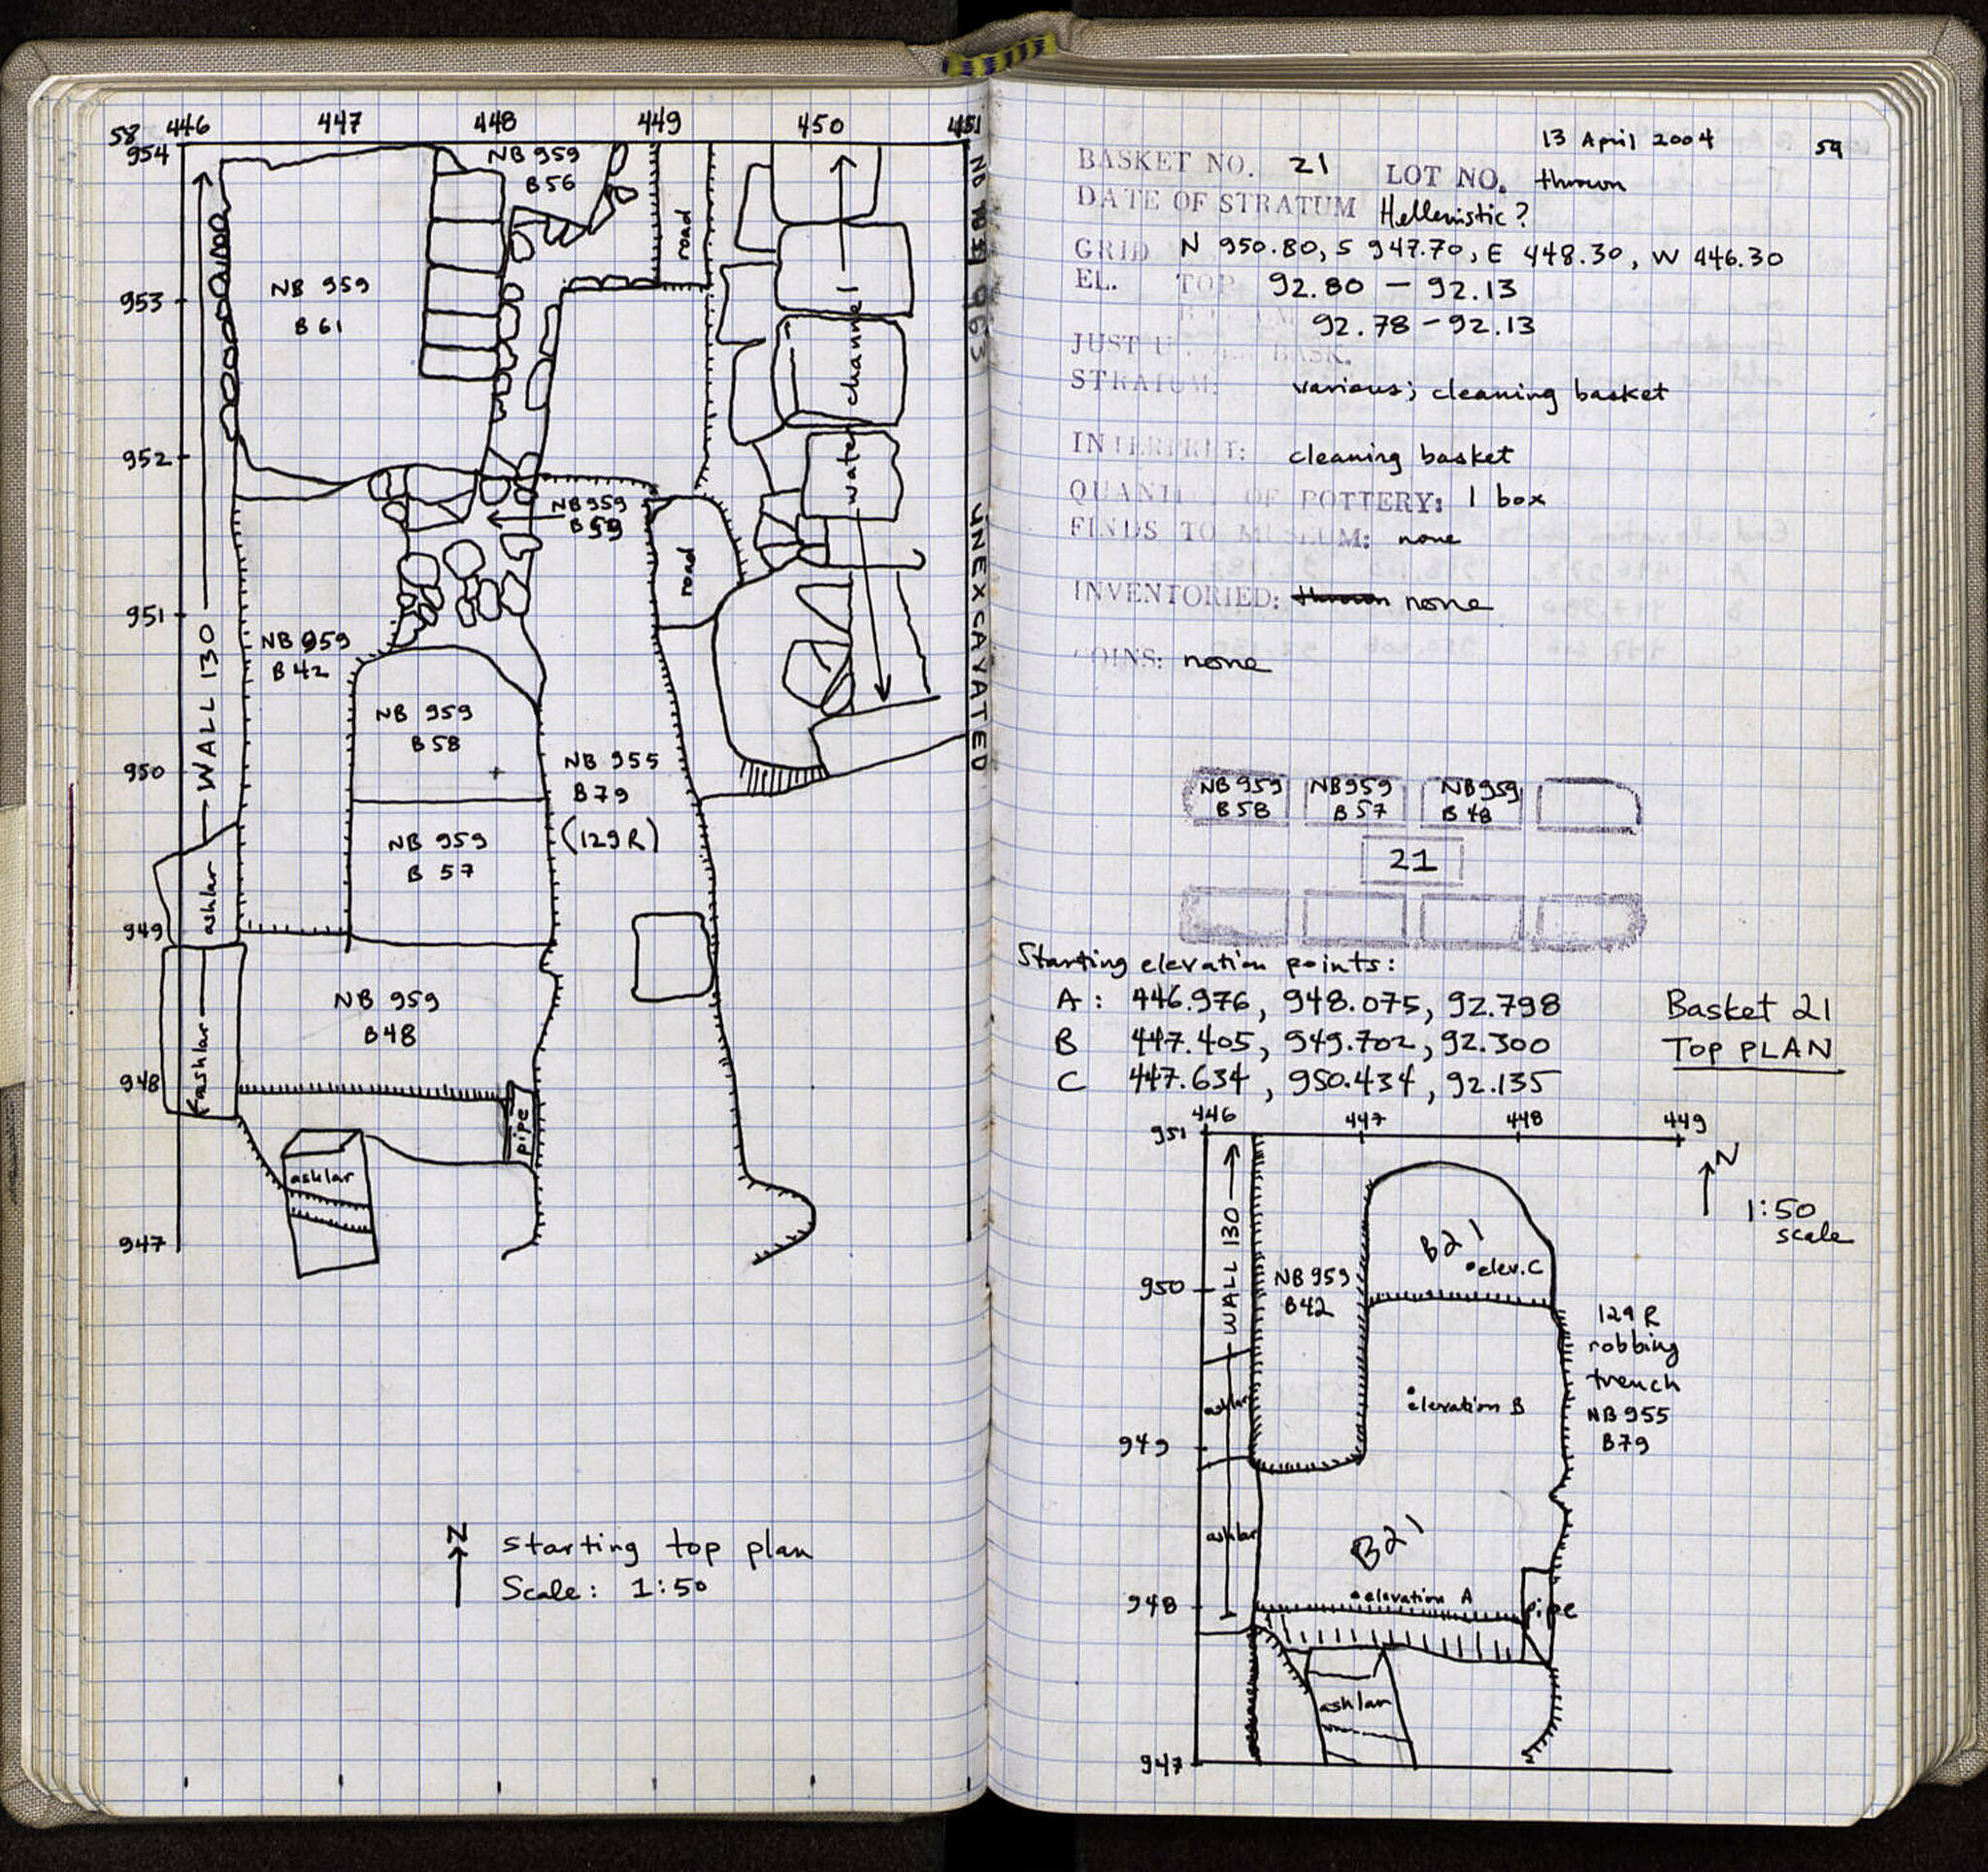 58
446 447 448 449 450 451
954
NB 959
B56
road
NB 959
B61
953
water channel
952
NB 959
B59
road
951
WALL 130
NB 959
B42
UNEXCAVATED
NB 959
B58
950
NB 955
B79
(129R)
NB 959
B 57
ashlar
949
NB 959
B48
ashlar
948
pipe
ashlar
947
N
starting top plan
Scale: 1:50
13 April 2004
59
BASKET NO. 21 LOT NO. thrown
DATE OF STRATUM Hellenistic?
GRID N 950.80, S 947.70, E 448.30, W 446.30
EL. TOP 92.80 - 92.13
92.78 - 92.13
JUST BASK.
STRATUM: various; cleaning basket
INTERPRET: cleaning basket
QUANTITY OF POTTERY: 1 box
FINDS TO MUSEUM: none
INVENTORIED: thrown none
COINS: none
NB 959 NB959 NB959
B58 B57 B48
21
Starting elevation points:
A: 446.976, 948.075, 92.798
B 447.405, 949.702, 92.300
C 447.634, 950.434, 92.135
Basket 21
TOP PLAN
446 447 448 449
951
N
1:50
scale
WALL 130
B21
elev. C
950
NB 959
B42
129R
robbing
trench
NB 955
B79
ashlar
elevation B
949
ashlar
B21
948
elevation A
pipe
ashlar
947